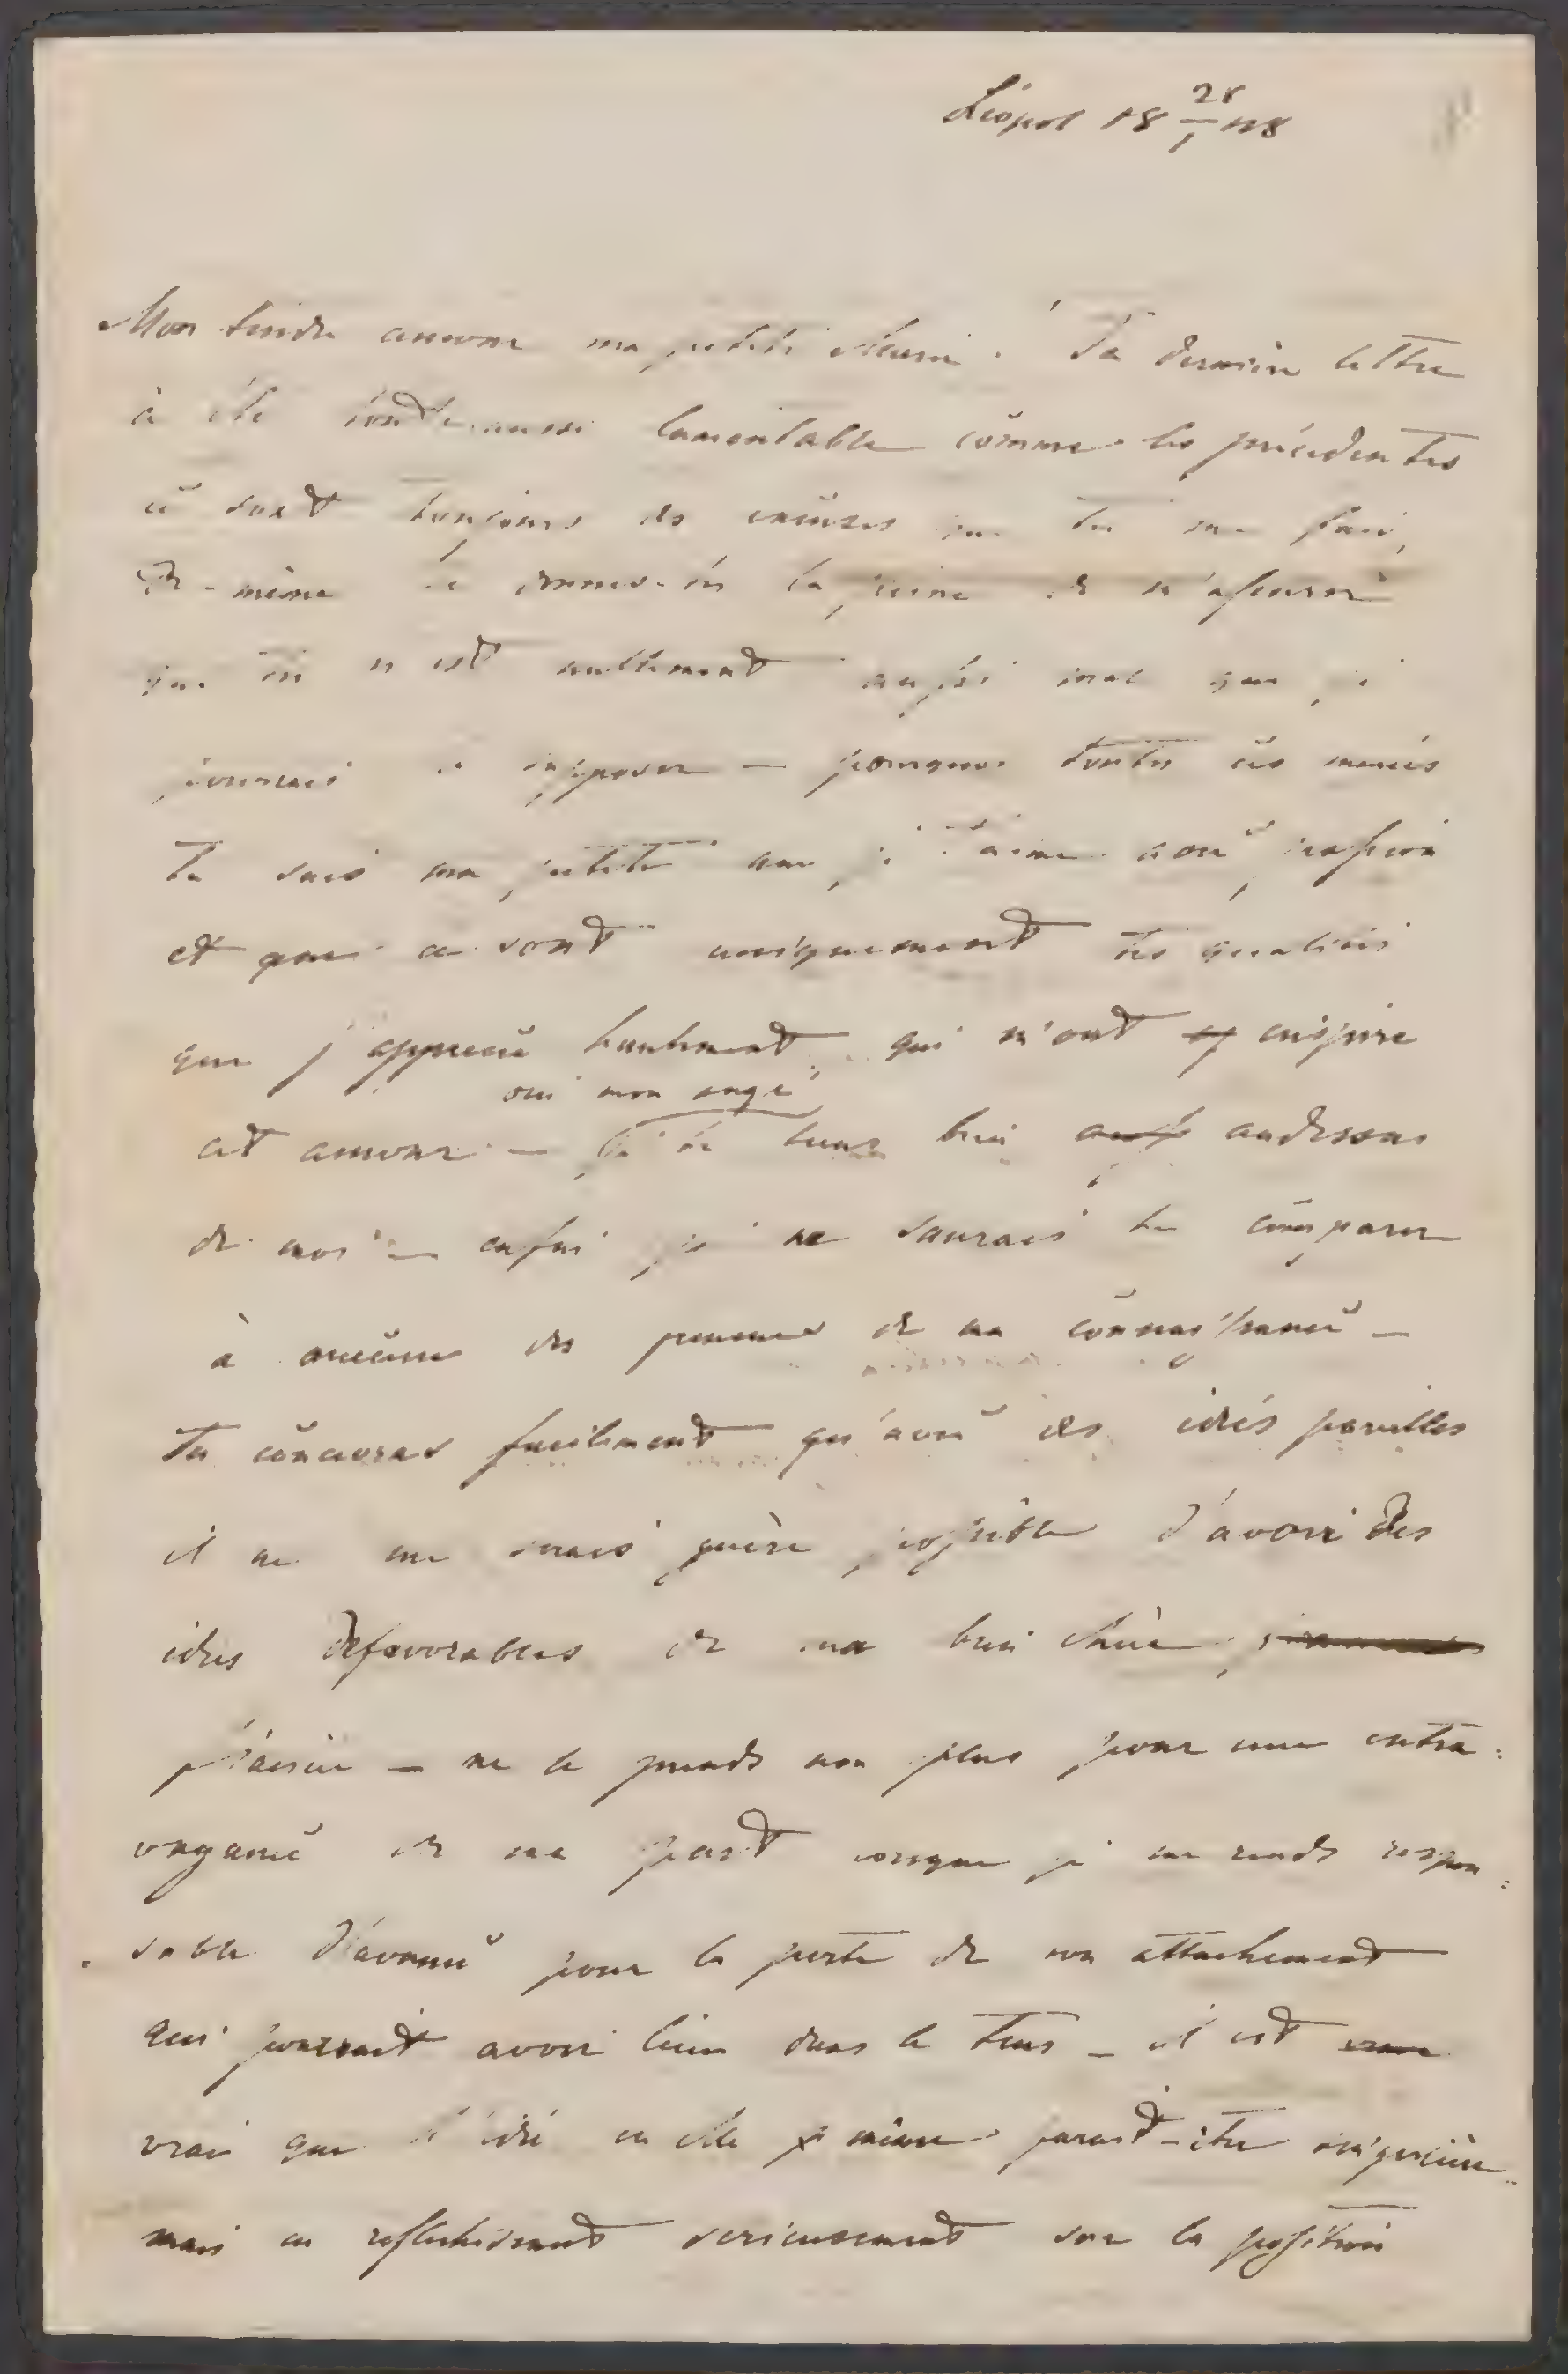 Léopol 18 28/1 48
Mon tendre amour ma petite Marie. Ta dernière lettre
à été toute aussi lamentable comme les précédentes
ce sont toujours des excuses que tu me fais,
de même te donnes-tu la peine de m'assurer
que tu n'est nullement aussi mal que je
pourrais le supposer — pourquoi toutes ces
Tu sais ma petite que je t'aime avec passion
et que ce sont uniquement tes qualités
que j'apprecie hautement, qui m'ont inspire
oui mon ange
cet amour — tu és bien audessus
de moi — enfin je ne saurais te comparer
à aucune des femmes de ma connaissance —
Tu concevras facilement qu'avec des idés pareilles
il ne me serais guère possible d'avoir des
idés defavorables de ma bien chère
— ne le prends non plus pour une extra:
vagance de ma part lorsque je me rends respon:
sable d'avance pour la perte de son attachement
qui pourrait avoir lieu dans le tems — il est
vrai que l'idé en elle même parait-être
mais en reflechissant serieusement sur la position